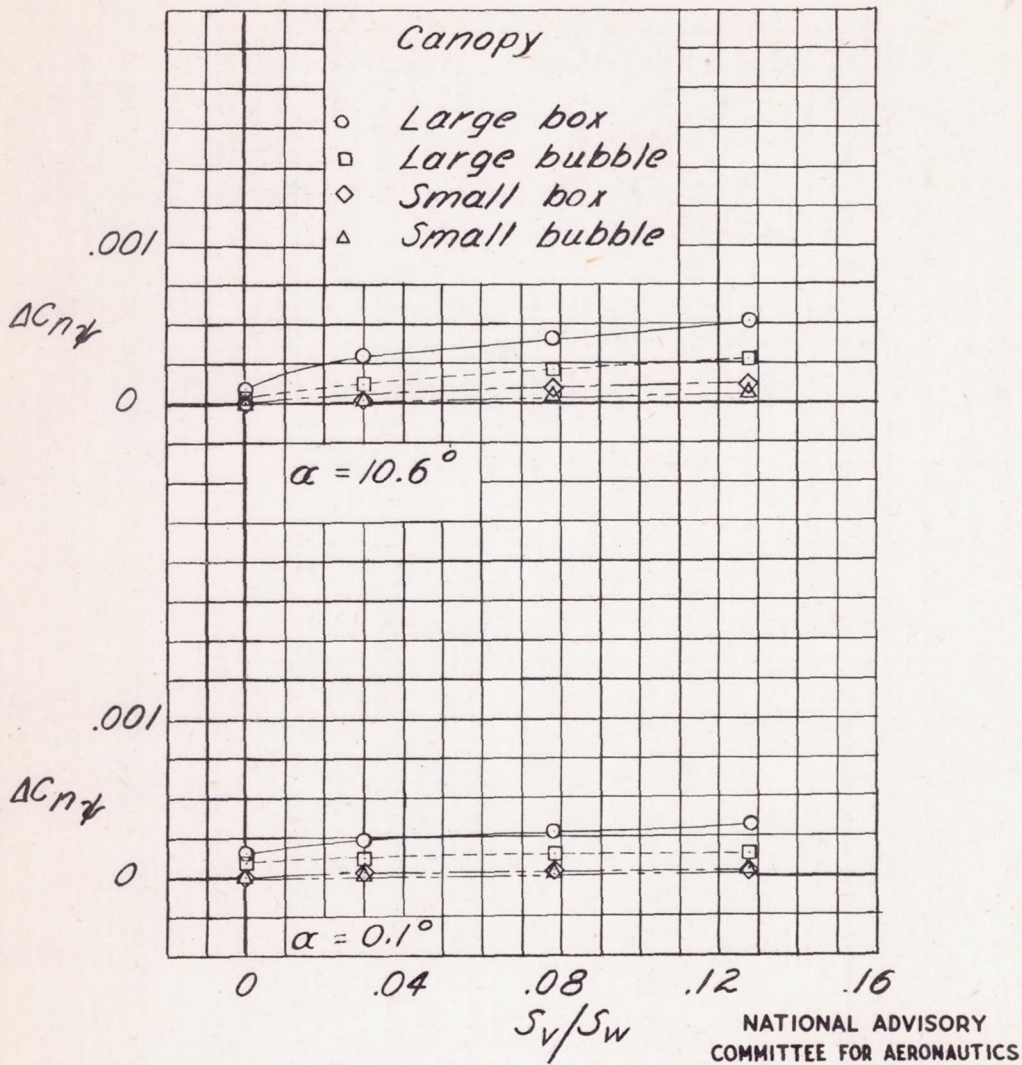 Canopy
○ Large box
□ Large bubble
◇ Small box
△ Small bubble
.001
ΔCnψ
0
α = 10.6°
.001
ΔCnψ
0
α = 0.1°
0 .04 .08 .12 .16
Sv/Sw
NATIONAL ADVISORY
COMMITTEE FOR AERONAUTICS